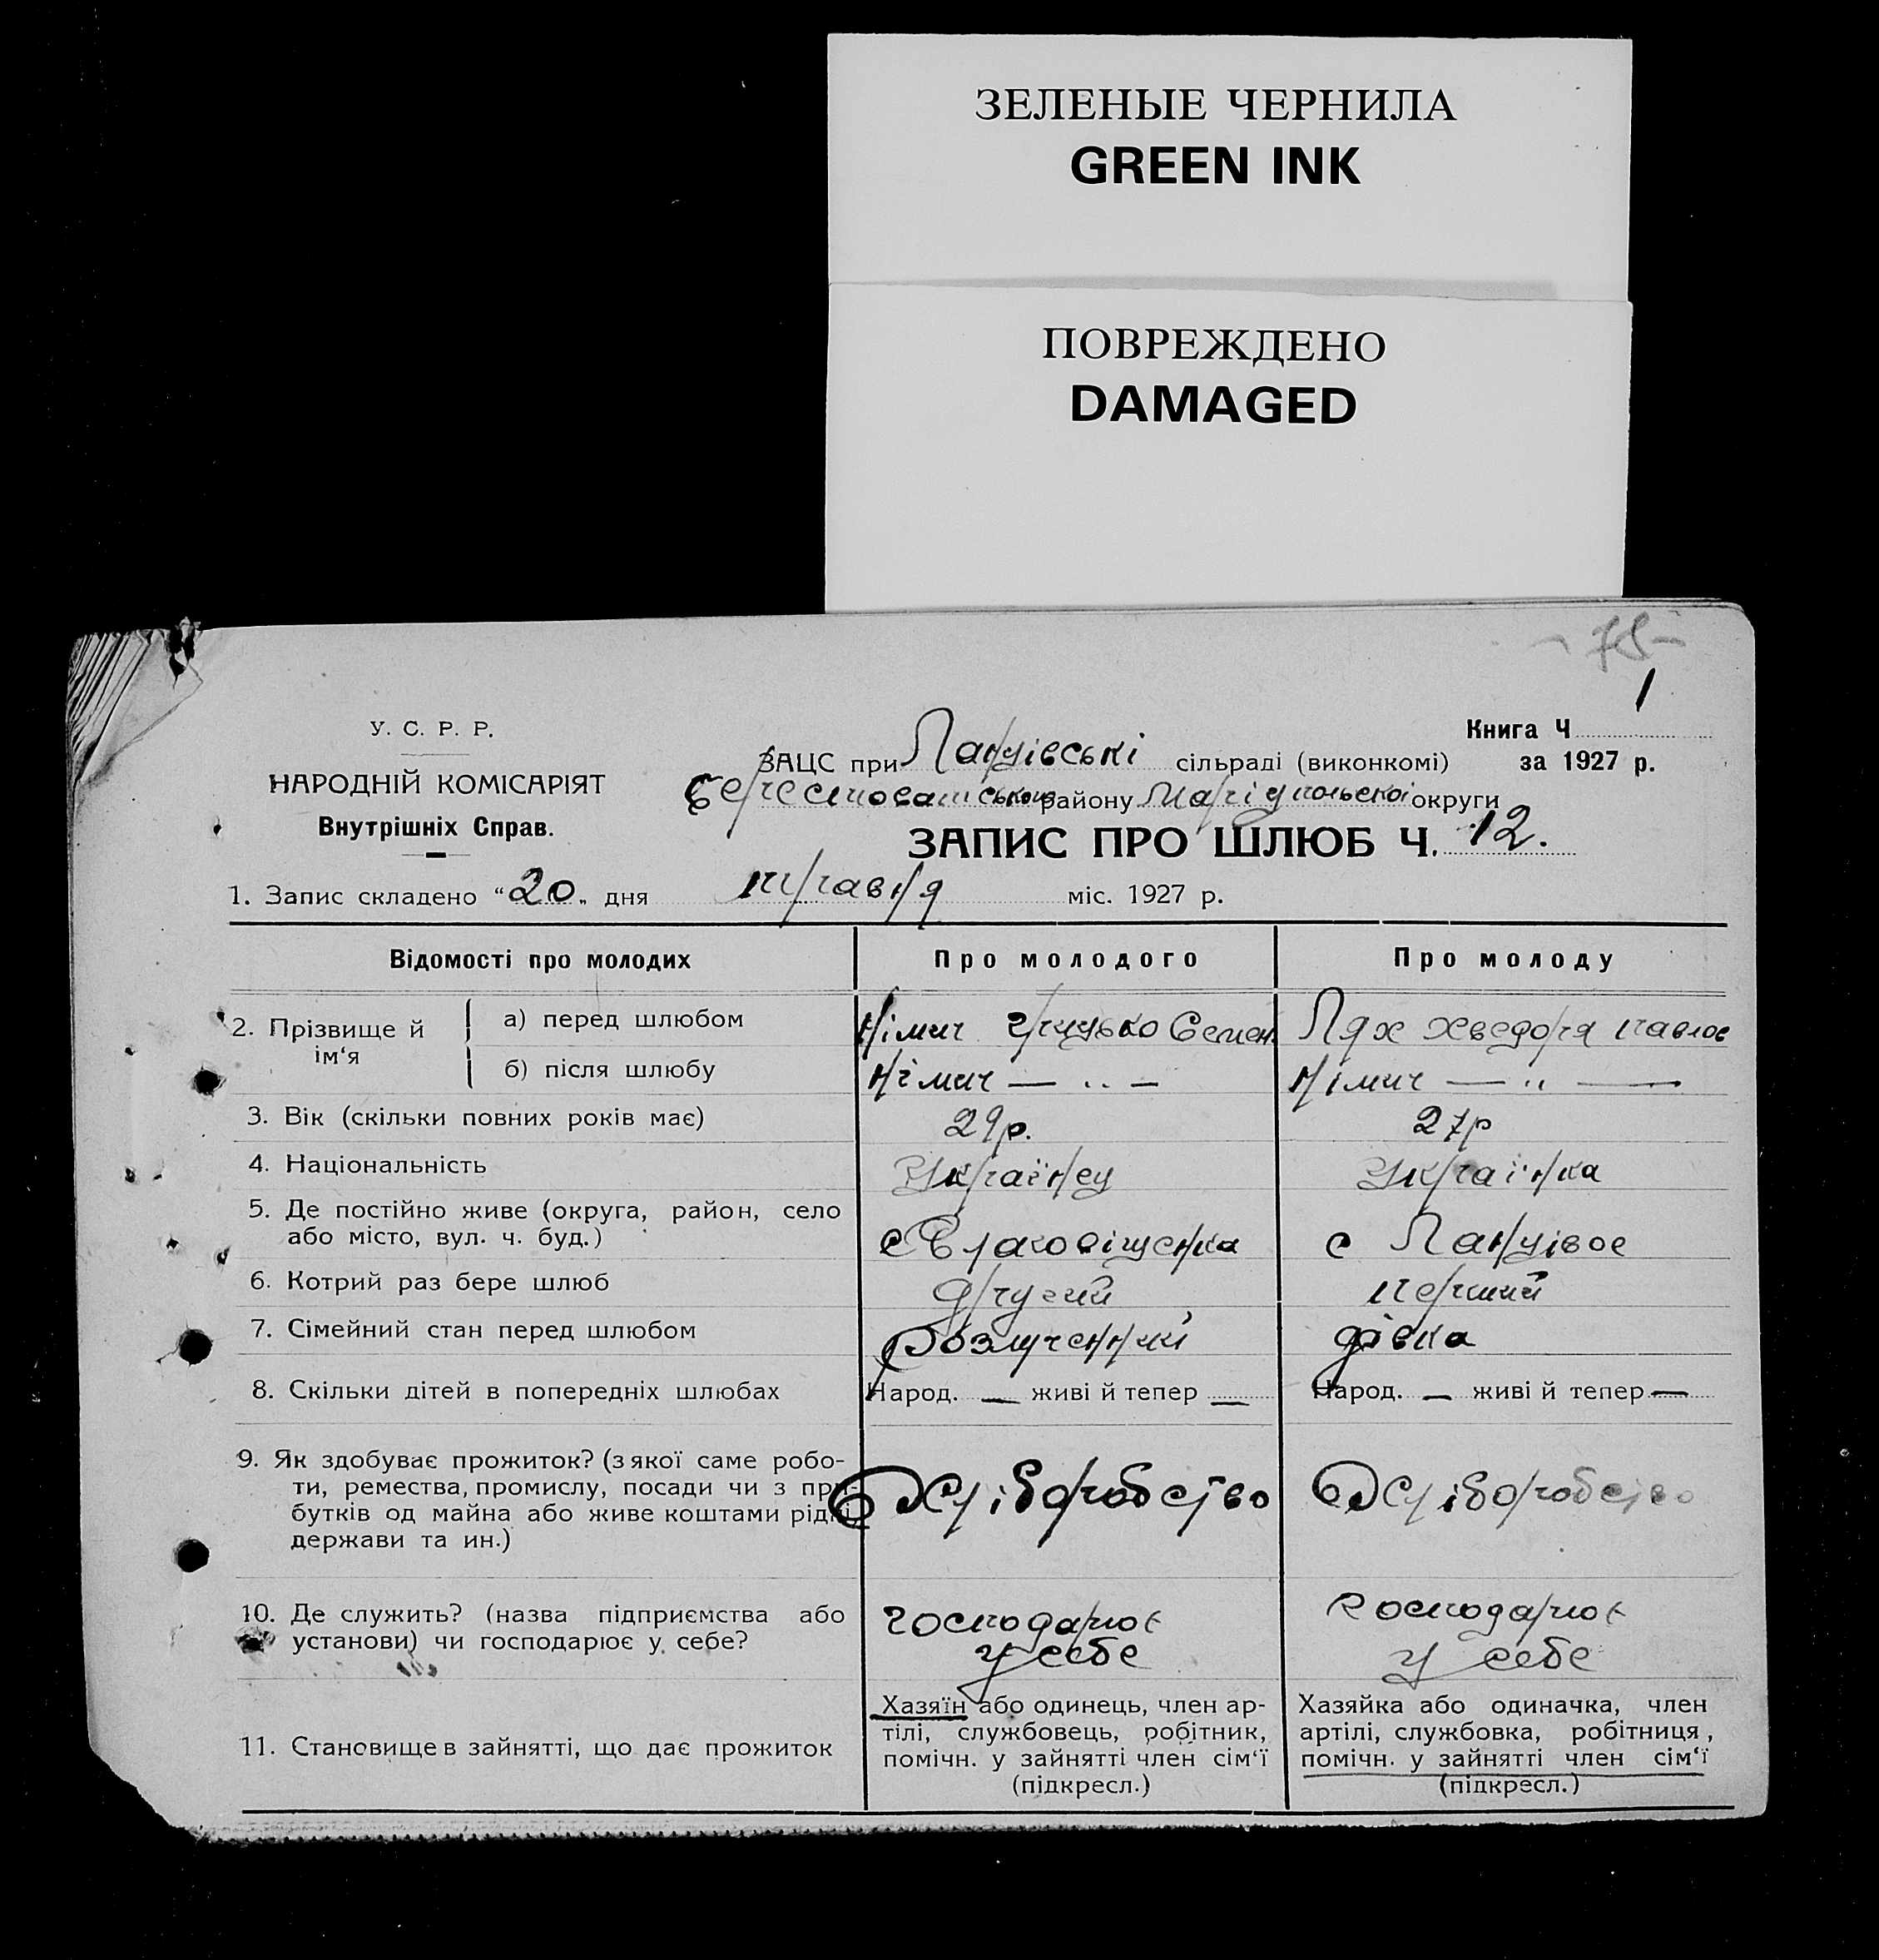 ЗЕЛЕНЫЕ ЧЕРНИЛА
GREEN INK
ПОВРЕЖДЕНО
DAMAGED
1
У. С. Р. Р.
НАРОДНІЙ КОМІСАРІЯТ
Внутрішніх Справ.
Книга Ч
ЗАЦС при сільраді (виконкомі) за 1927 р.
району Маріупольскоі округи
ЗАПИС ПРО ШЛЮБ Ч. 12.
1. Запис складено “20„ дня травня міс. 1927 р.
Відомості про молодих Про молодого Про молоду
2. Прізвище й ім‘я
а) перед шлюбом Німич Грицько Семен. Лях Хведора Павлов
б) після шлюбу Німич — ,, — Німич — ,, —
3. Вік (скільки повних років має) 29р. 27р
4. Національність Украінец Украінка
5. Де постійно живе (округа, район, село
або місто, вул. ч. буд.) с с
6. Котрий раз бере шлюб другий перший
7. Сімейний стан перед шлюбом розлученний дівка
8. Скільки дітей в попередніх шлюбах Народ. — живі й тепер — Народ. — живі й тепер —
9. Як здобуває прожиток? (з якої саме робо-
ти, ремества, промислу, посади чи з при-
бутків од майна або живе коштами рідні,
держави та ин.)
Хліборобство Хліборобство
10. Де служить? (назва підприємства або
установи) чи господарює у себе?
господарює
у себе
господарює
у себе
11. Становище в зайнятті, що дає прожиток
Хазяїн або одинець, член ар-
тілі, службовець, робітник,
помічн. у зайнятті член сім‘ї
(підкресл.)
Хазяйка або одиначка, член
артілі, службовка, робітниця,
помічн. у зайнятті член сім‘ї
(підкресл.)